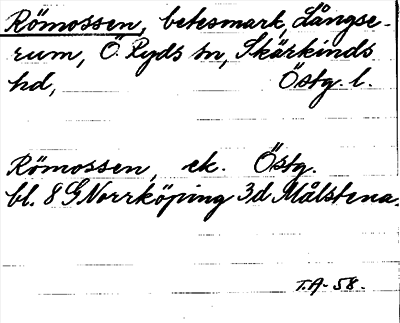 Römossen, betesmark, Långse-
rum, Ö. Ryds sn, Skärkinds
hd, Östg. l.
Römossen, ek. Östg.
bl. 8 G Norrköping 3d Målstena.
T.A-58.